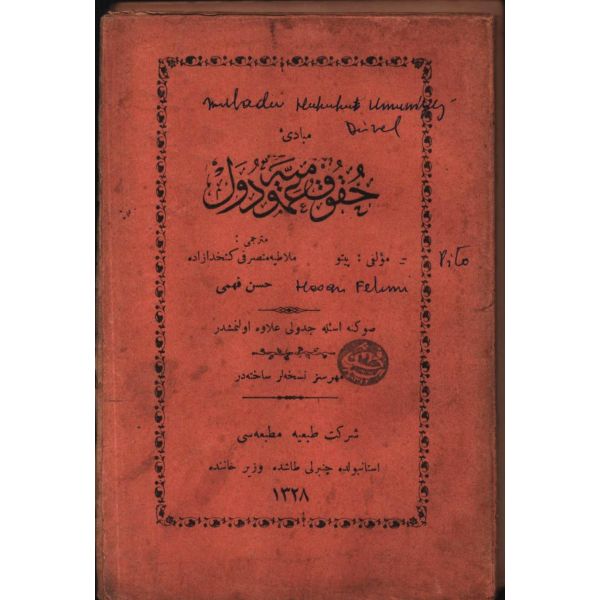 Mebadii Hukuku Umumiye-i
Düvel
مبادئ
حقوق عموميهٔ دول
مترجمی :
مؤلفی : پیتو ملاطیه متصرفی کتخدازاده
Pito
Hasan Fehmi حسن فهمی
صوکنه اسئله جدولی علاوه اولنمشدر
مهرسز نسخه‌لر ساخته‌در
شرکت طبعیه مطبعه‌سی
استانبولده چنبرلی طاشده وزیر خاننده
١٣٢٨